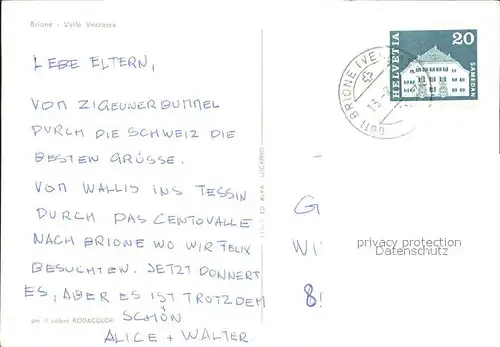 Brione - Valle Verzasca
LEBE ELTERN,
VOM ZIGEUNERBUMMEL
DURCH DIE SCHWEIZ DIE
BESTEN GRÜSSE.
VON WALLIS INS TESSIN
DURCH DAS CENTOVALLE
NACH BRIONE WO WIR FELIX
BESUCHTEN. JETZT DONNERT
ES, ABER ES IST TROTZDEM
SCHÖN
ALICE + WALTER
per il colore KODACOLOR
ED. ALFA LOCARNO
HELVETIA
20
SAMEDAN
6611 BRIONE (VE
13.
G
WI
8
privacy protection
Datenschutz